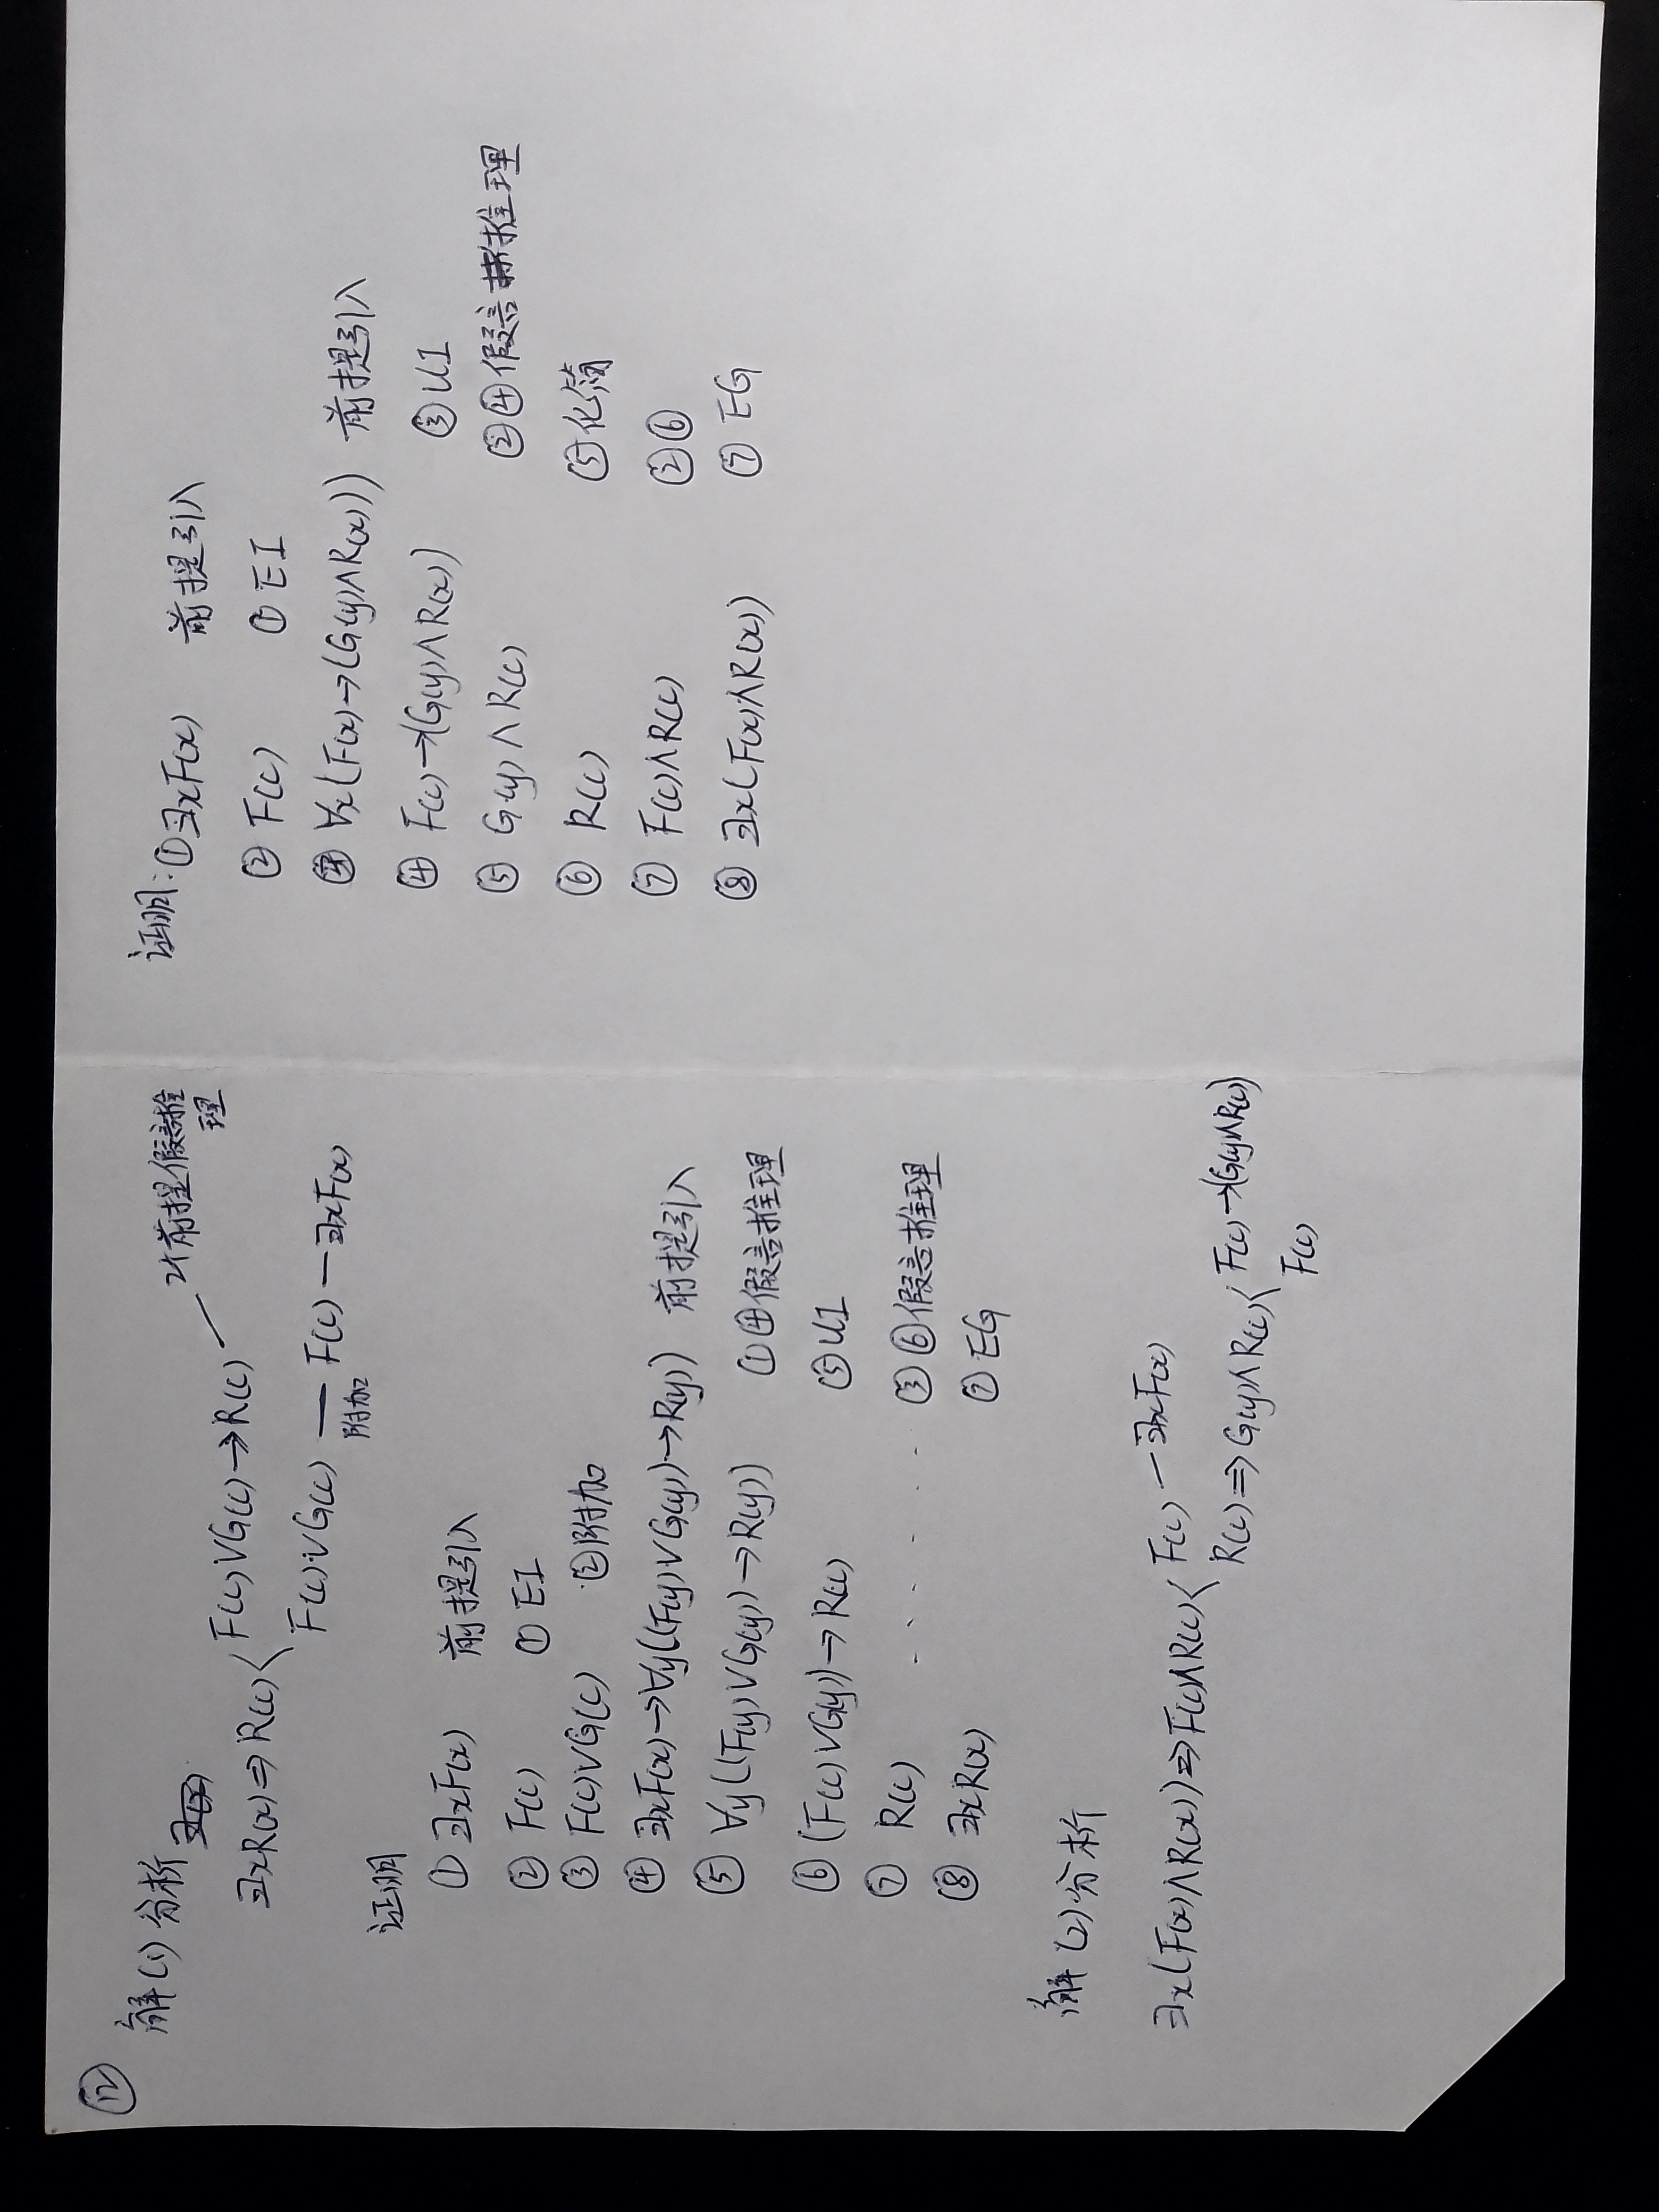 ⑫
解(1) 分析
2个前提假言推理
∃xR(x)⇒R(c)
F(c)∨G(c)→R(c)
F(c)∨G(c) — F(c) — ∃xF(x)
附加
证明
① ∃xF(x) 前提引入
② F(c) ① EI
③ F(c)∨G(c) ②附加
④ ∃xF(x)→∀y((F(y)∨G(y))→R(y)) 前提引入
⑤ ∀y((F(y)∨G(y))→R(y)) ①④假言推理
⑥ (F(c)∨G(y))→R(c) ⑤UI
⑦ R(c) ...... ③⑥假言推理
⑧ ∃xR(x) ⑦EG
解(2)分析
∃x(F(x)∧R(x))⇒F(c)∧R(c)
F(c) — ∃xF(x)
R(c)⇒G(y)∧R(c)
F(c)→(G(y)∧R(c))
F(c)
证明: ①∃xF(x) 前提引入
② F(c) ① EI
③ ∀x(F(x)→(G(y)∧R(x))) 前提引入
④ F(c)→(G(y)∧R(x)) ③UI
⑤ G(y)∧R(c) ②④假言推理
⑥ R(c) ⑤化简
⑦ F(c)∧R(c) ②⑥
⑧ ∃x(F(x)∧R(x)) ⑦ EG